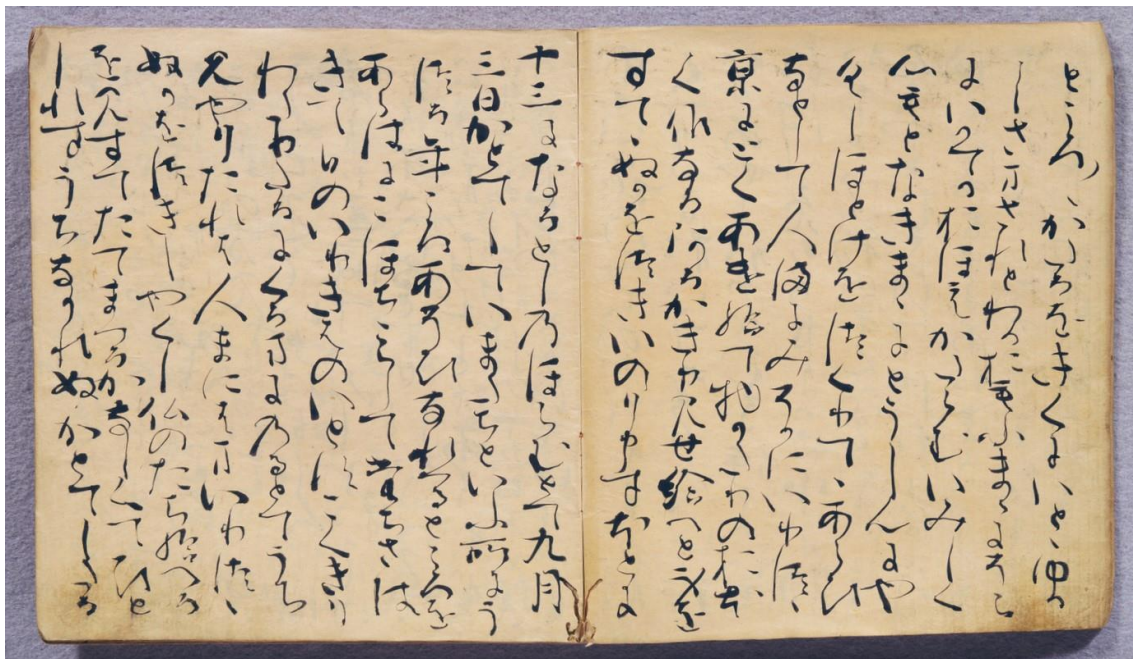 ところ〳〵かたるをきくにいとゝゆか
しさまされとわかおもふまゝにそら
にいかてかおほえかたらむいみしく
心もとなきまゝにとうしんにや
くしほとけをつくりてゝあらひ
なとして人まにみそかにいりつゝ
京にとくあけ給て物かたりのおほ
く候なるあるかきり見せ給へと身を
すてゝぬかをつきいのり申すほとに
十三になるとしのほらむとて九月
三日かとてしていまたちといふ所にう
つる年ころあそひなれつるところを
あらはにこほちちらしてたちさは
きて日のいりきはのいとすこくきり
わたりたるにくるまにのるとてうち
見やりたれは人まにはまいりつゝ
ぬかをつきしやくし仏のたち給へる
を見すてたてまつるかなしくてひと
しれすうちなかれぬかとてしたる